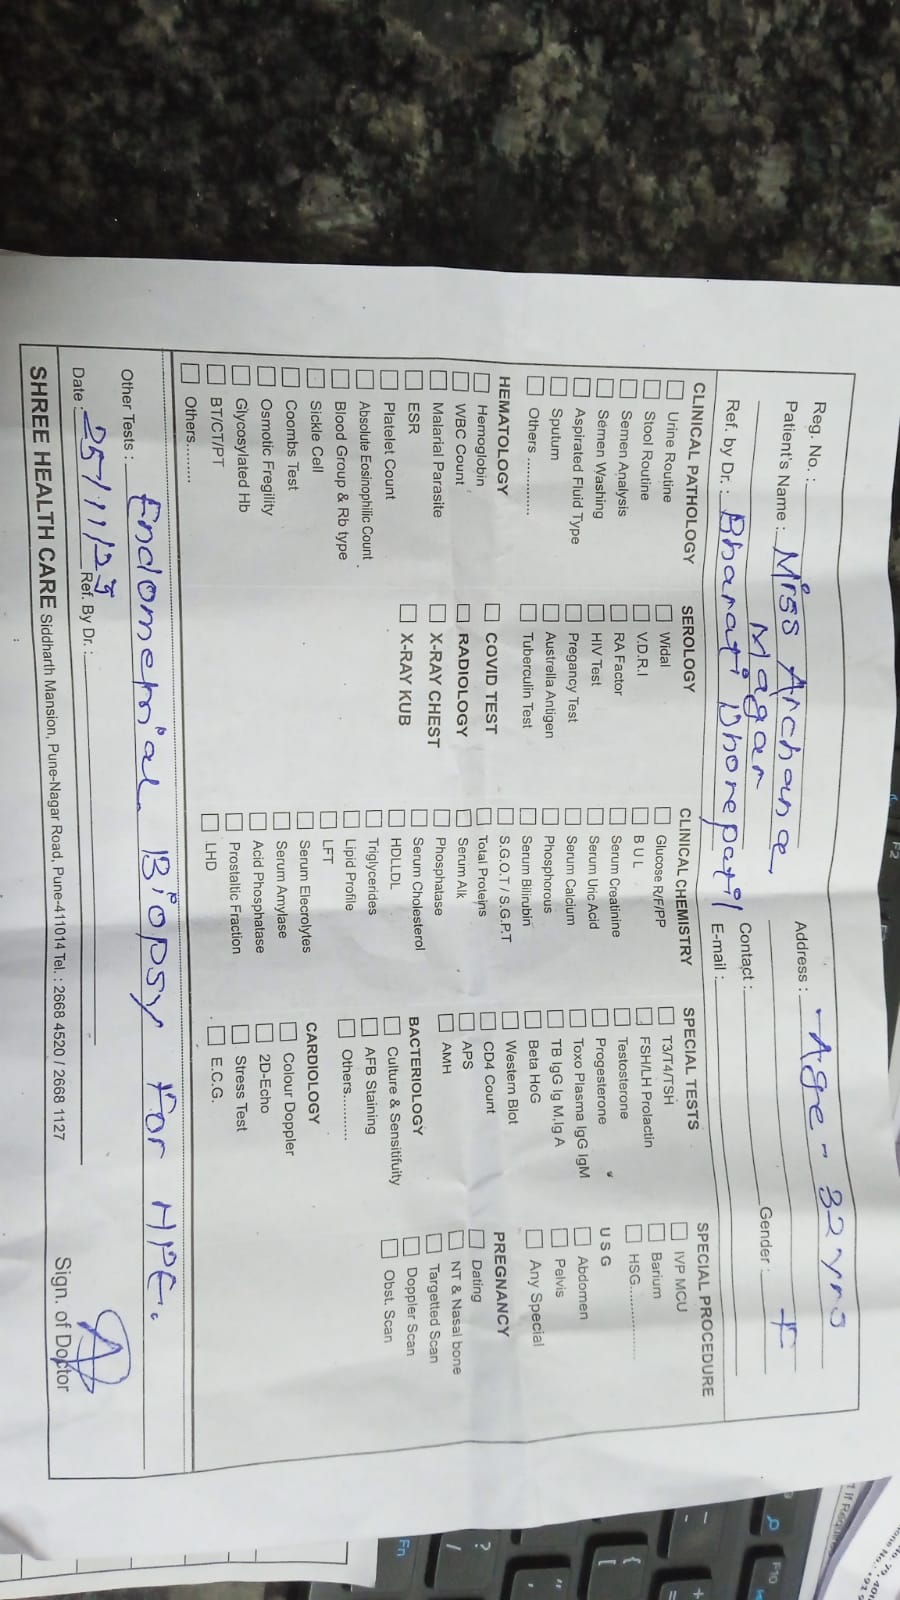 Reg. No. :
Address : - Age - 32 yrs
Patient's Name : Miss Archana, F
Magar
Contact : Gender :
Ref. by Dr. : Bharati Dhorepatil E-mail :
CLINICAL PATHOLOGY
Urine Routine
Stool Routine
Semen Analysis
Semen Washing
Aspirated Fluid Type
Sputum
Others .............
HEMATOLOGY
Hemoglobin
WBC Count
Malarial Parasite
ESR
Platelet Count
Absolute Eosinophilic Count
Blood Group & Rb type
Sickle Cell
Coombs Test
Osmotic Fregility
Glycosylated Hb
BT/CT/PT
Others.........
SEROLOGY
Widal
V.D.R.I
RA Factor
HIV Test
Pregancy Test
Austrella Antigen
Tuberculin Test
COVID TEST
RADIOLOGY
X-RAY CHEST
X-RAY KUB
CLINICAL CHEMISTRY
Glucose R/F/PP
B U L
Serum Creatinine
Serum Uric Acid
Serum Calcium
Phosphorous
Serum Bilirubin
S.G.O.T / S.G.P.T
Total Proteins
Serum Alk
Phosphatase
Serum Cholesterol
HDLLDL
Triglycerides
Lipid Profile
LFT
Serum Elecrolytes
Serum Amylase
Acid Phosphatase
Prostaltic Fraction
LHD
SPECIAL TESTS
T3/T4/TSH
FSH/LH Prolactin
Testosterone
Progesterone
Toxo Plasma IgG IgM
TB IgG Ig M,Ig A
Beta HoG
Western Blot
CD4 Count
APS
AMH
BACTERIOLOGY
Culture & Sensitifuity
AFB Staining
Others..........
CARDIOLOGY
Colour Doppler
2D-Echo
Stress Test
E.C.G.
SPECIAL PROCEDURE
IVP MCU
Barium
HSG................
U S G
Abdomen
Pelvis
Any Special
PREGNANCY
Dating
NT & Nasal bone
Targetted Scan
Doppler Scan
Obst. Scan
Other Tests : Endometrial Biopsy For HPE.
Date : 25/11/23 Ref. By Dr. :
Sign. of Doctor
SHREE HEALTH CARE Siddharth Mansion, Pune-Nagar Road, Pune-411014 Tel. : 2668 4520 / 2668 1127
F2
F10
Fn